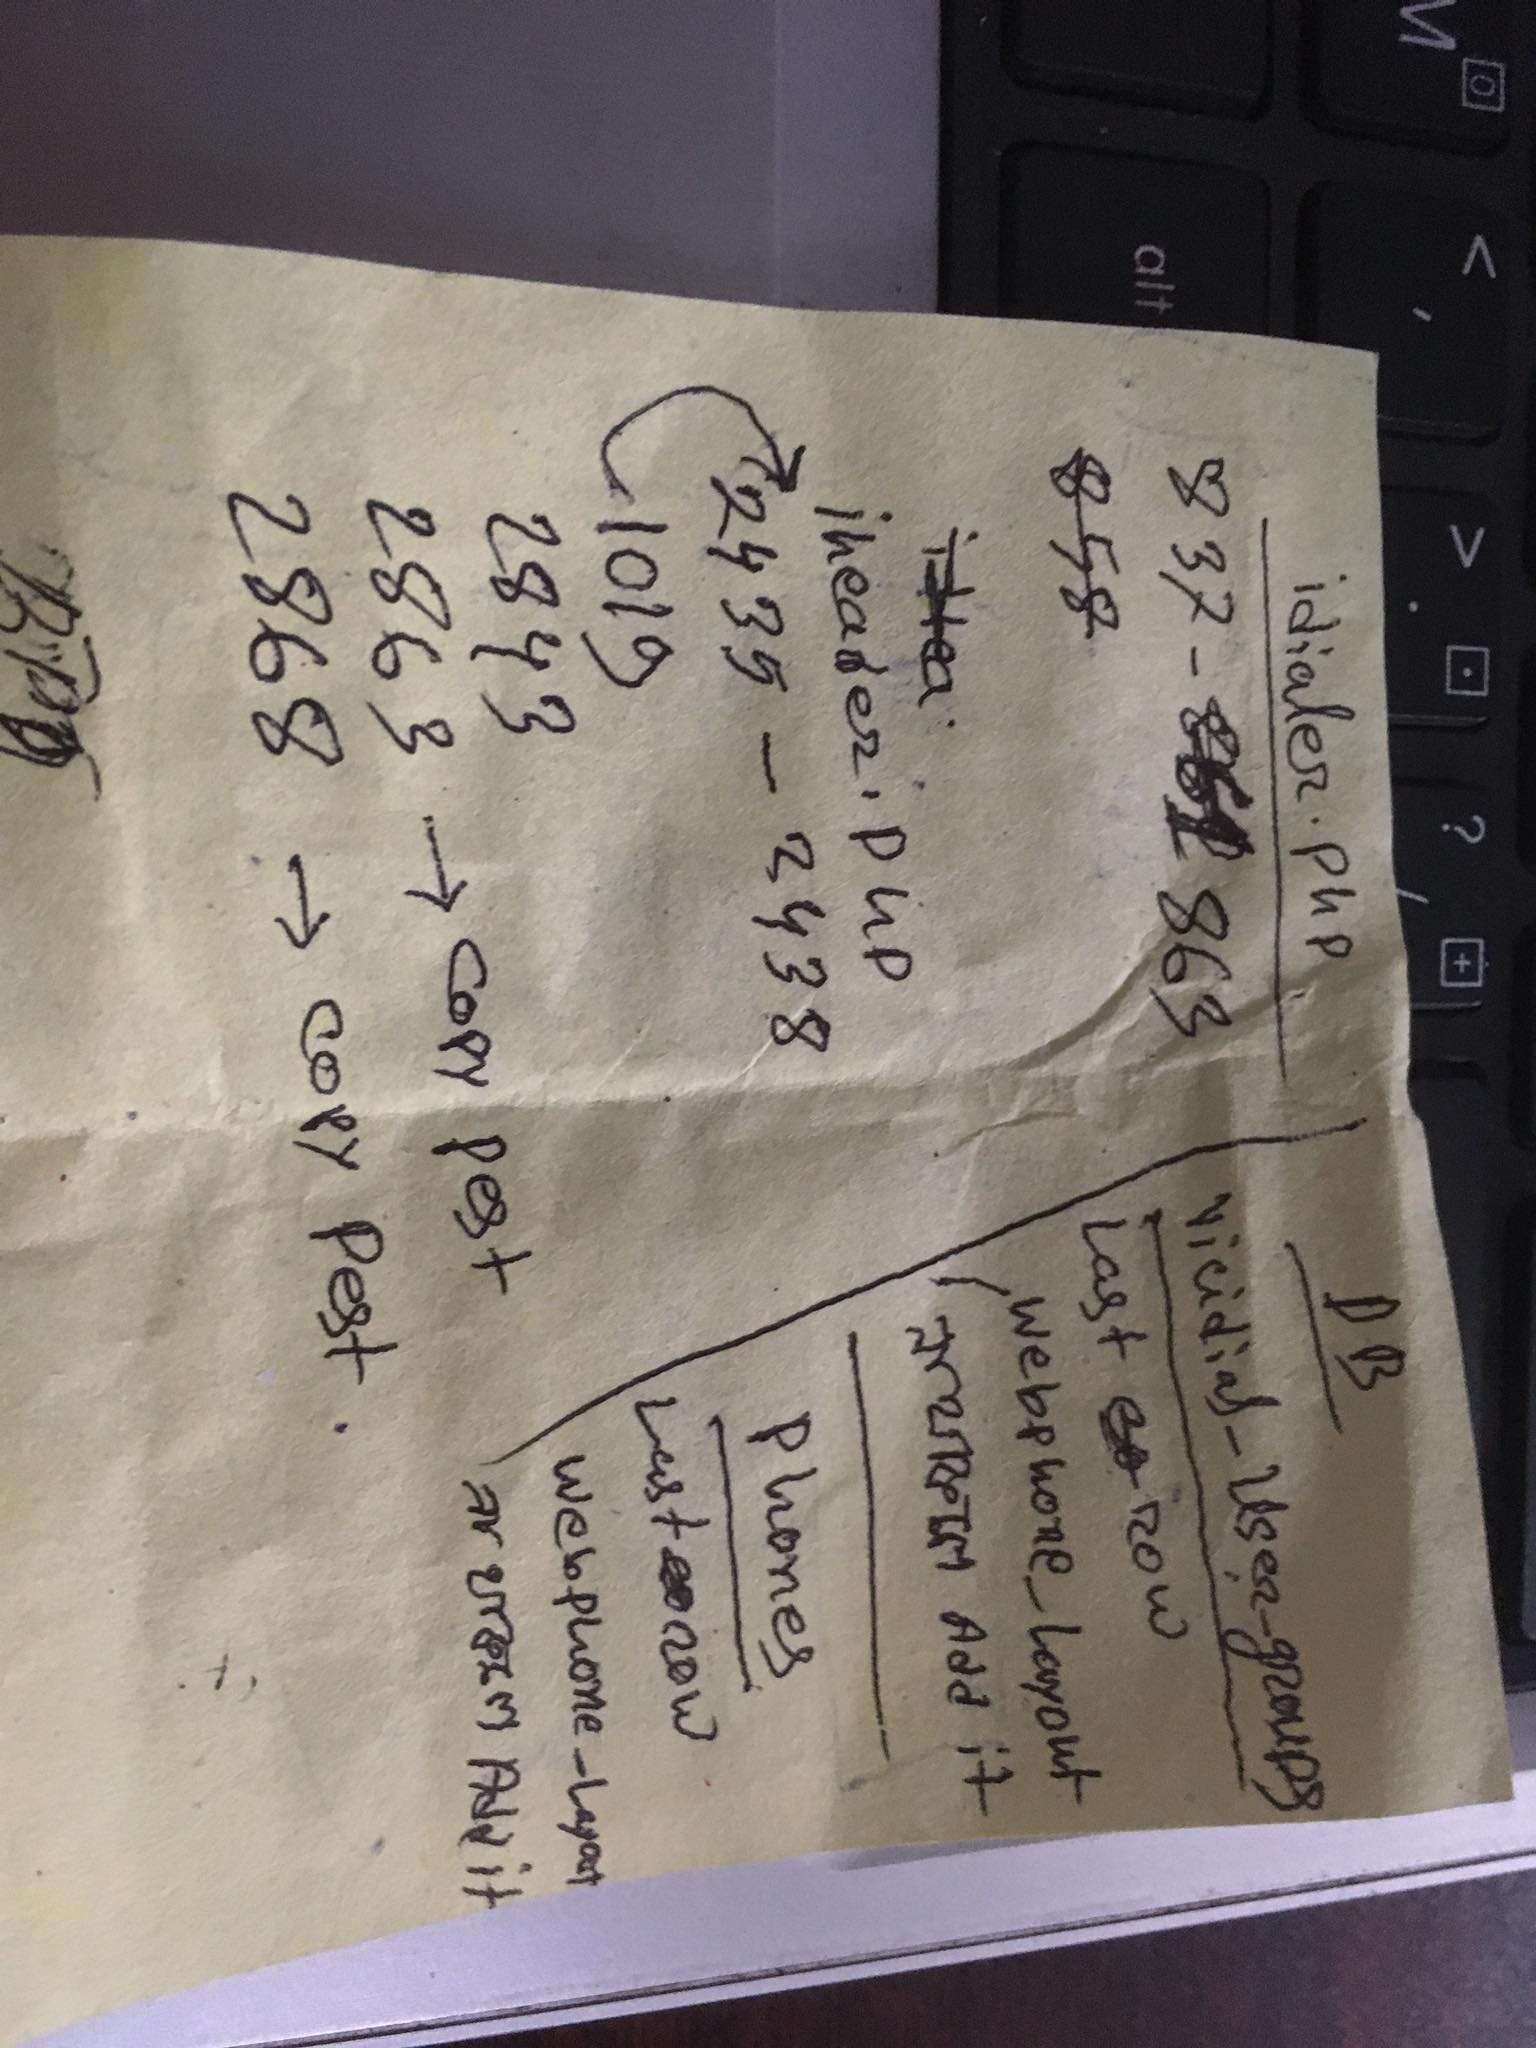 M
<
,
>
.
?
/
alt
idialer.php
837 - 863
858
iheader.php
2435 - 2438
1019
2843
2863 → copy pest
2868 → copy pest.
DB
vicidial_User_groups
Last row
webphone_Layout
না থাকলে Add it
Phones
Last row
webphone_Layout
না থাকলে Add it